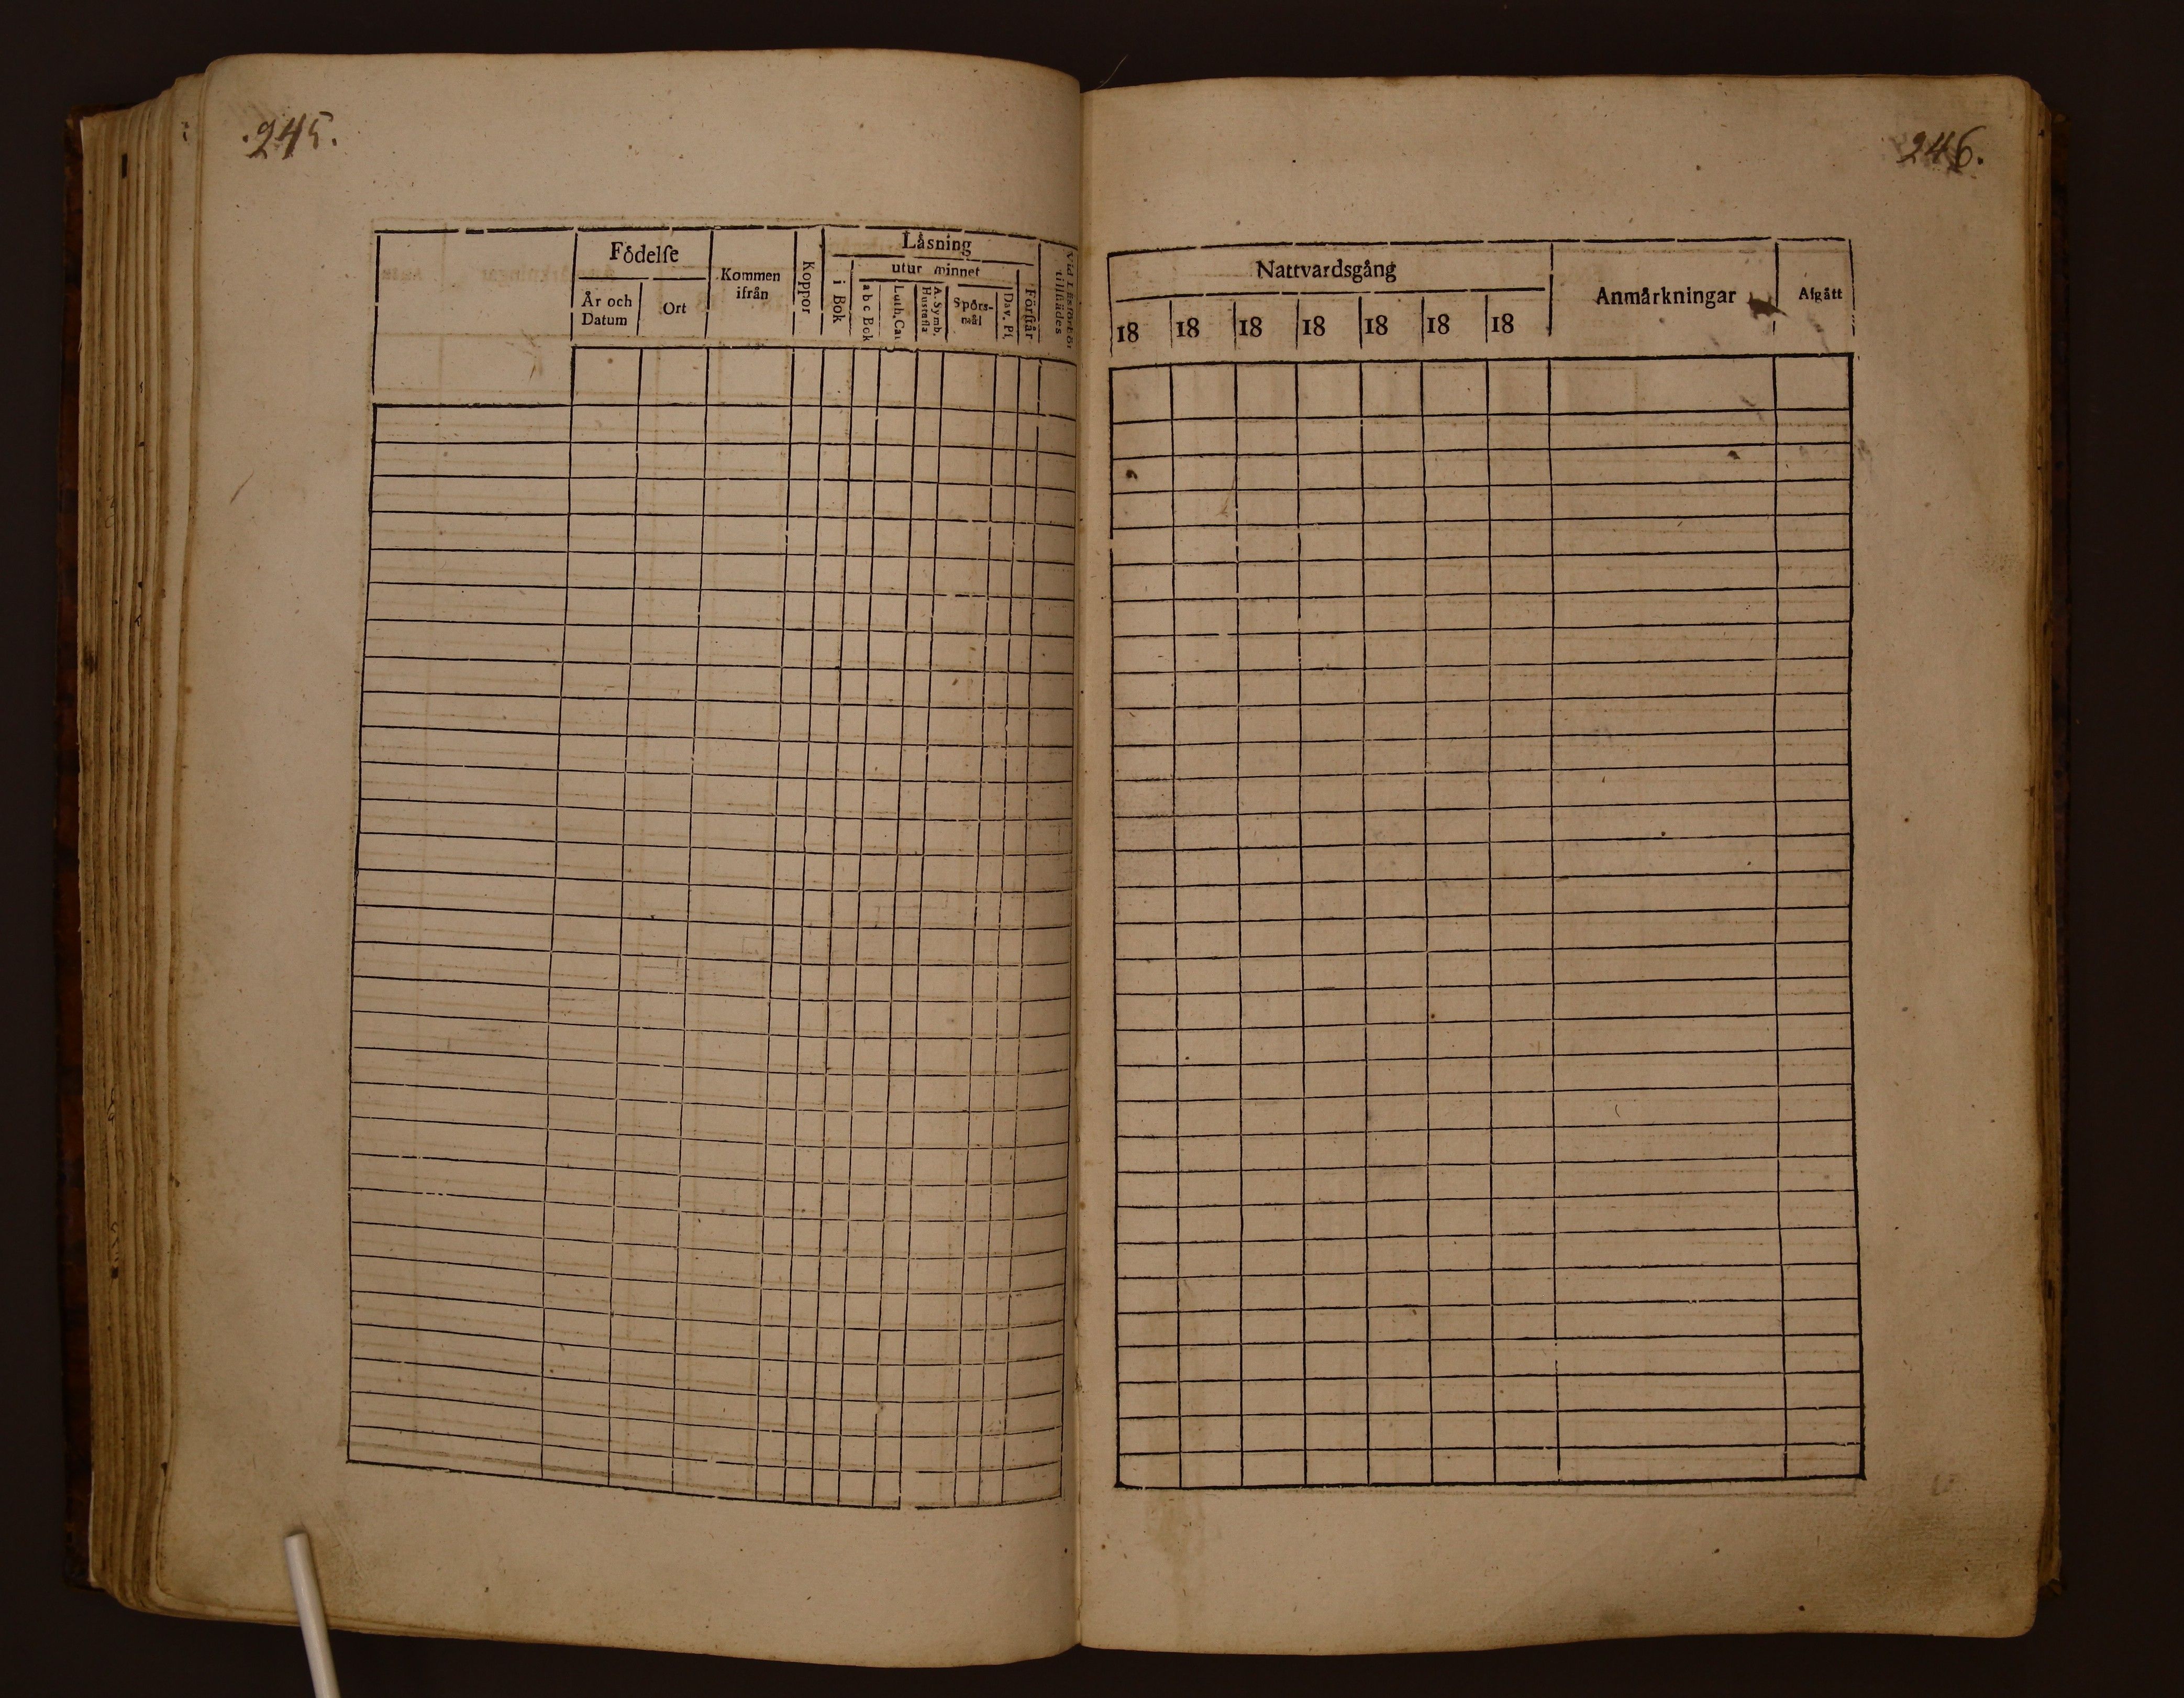 .245.
Födelſe
År och
Datum
Ort
Kommen
ifrån
Koppor
Låsning
i Bok
utur minnet
a b c Bok
Luth. Cat
A. Symb.
Hustafla
Spörs-
mål
Dav. Pſ.
Förſtår
tillſtädes
246.
Nattvardsgång
18 18 18 18 18 18 18
Anmårkningar
Afgått